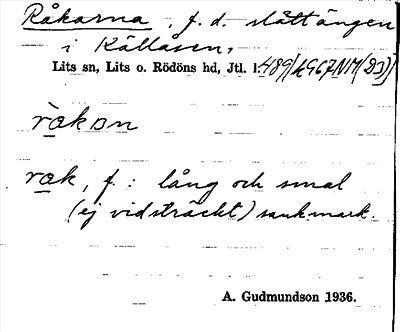 Råkarna, f. d. slåttängen
i Kållåsen,
Lits sn, Lits o. Rödöns hd, Jtl.
ràkon
rak, f. : lång och smal
(ej vidsträckt) sankmark.
A. Gudmundson 1936.